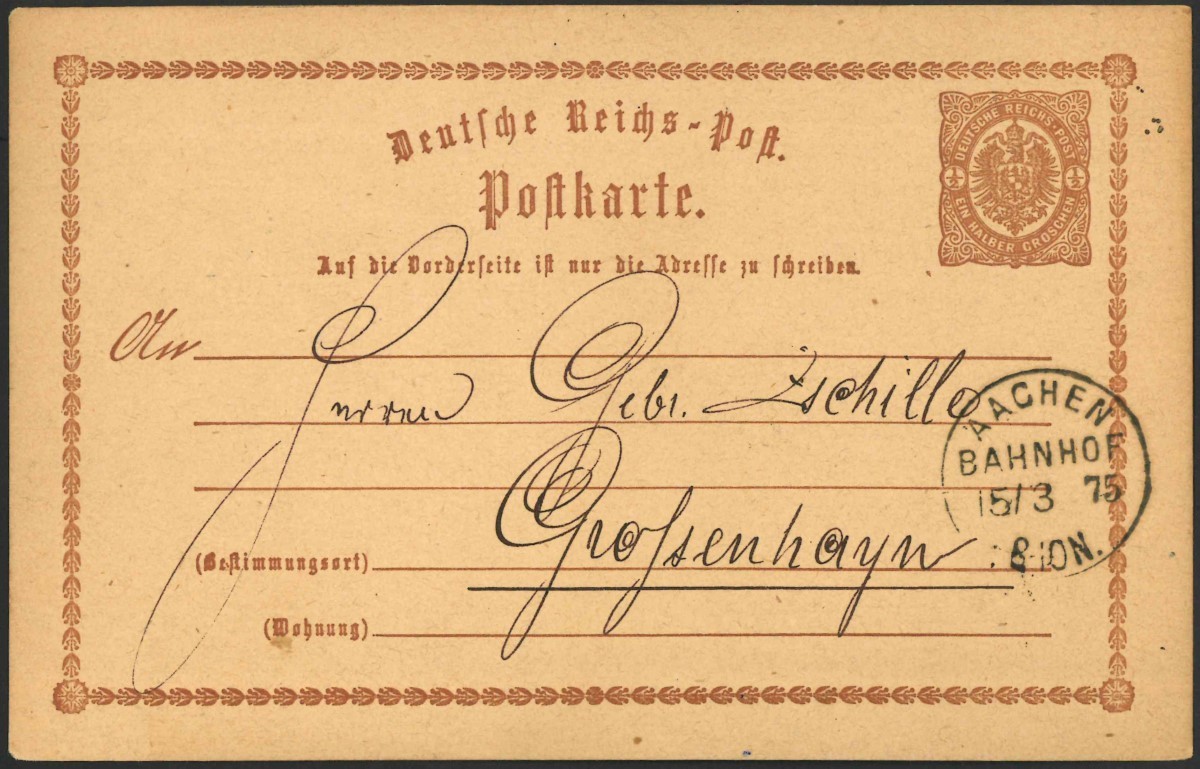 Deutsche Reichs-Post.
Postkarte.
Auf die Vorderseite ist nur die Adresse zu schreiben.
DEUTSCHE REICHS-POST
½ ½
EIN HALBER GROSCHEN
An
Herren Gebr. Zschille
Großenhayn
(Bestimmungsort)
(Wohnung)
AACHEN
BAHNHOF
15/3 75
8-10N.